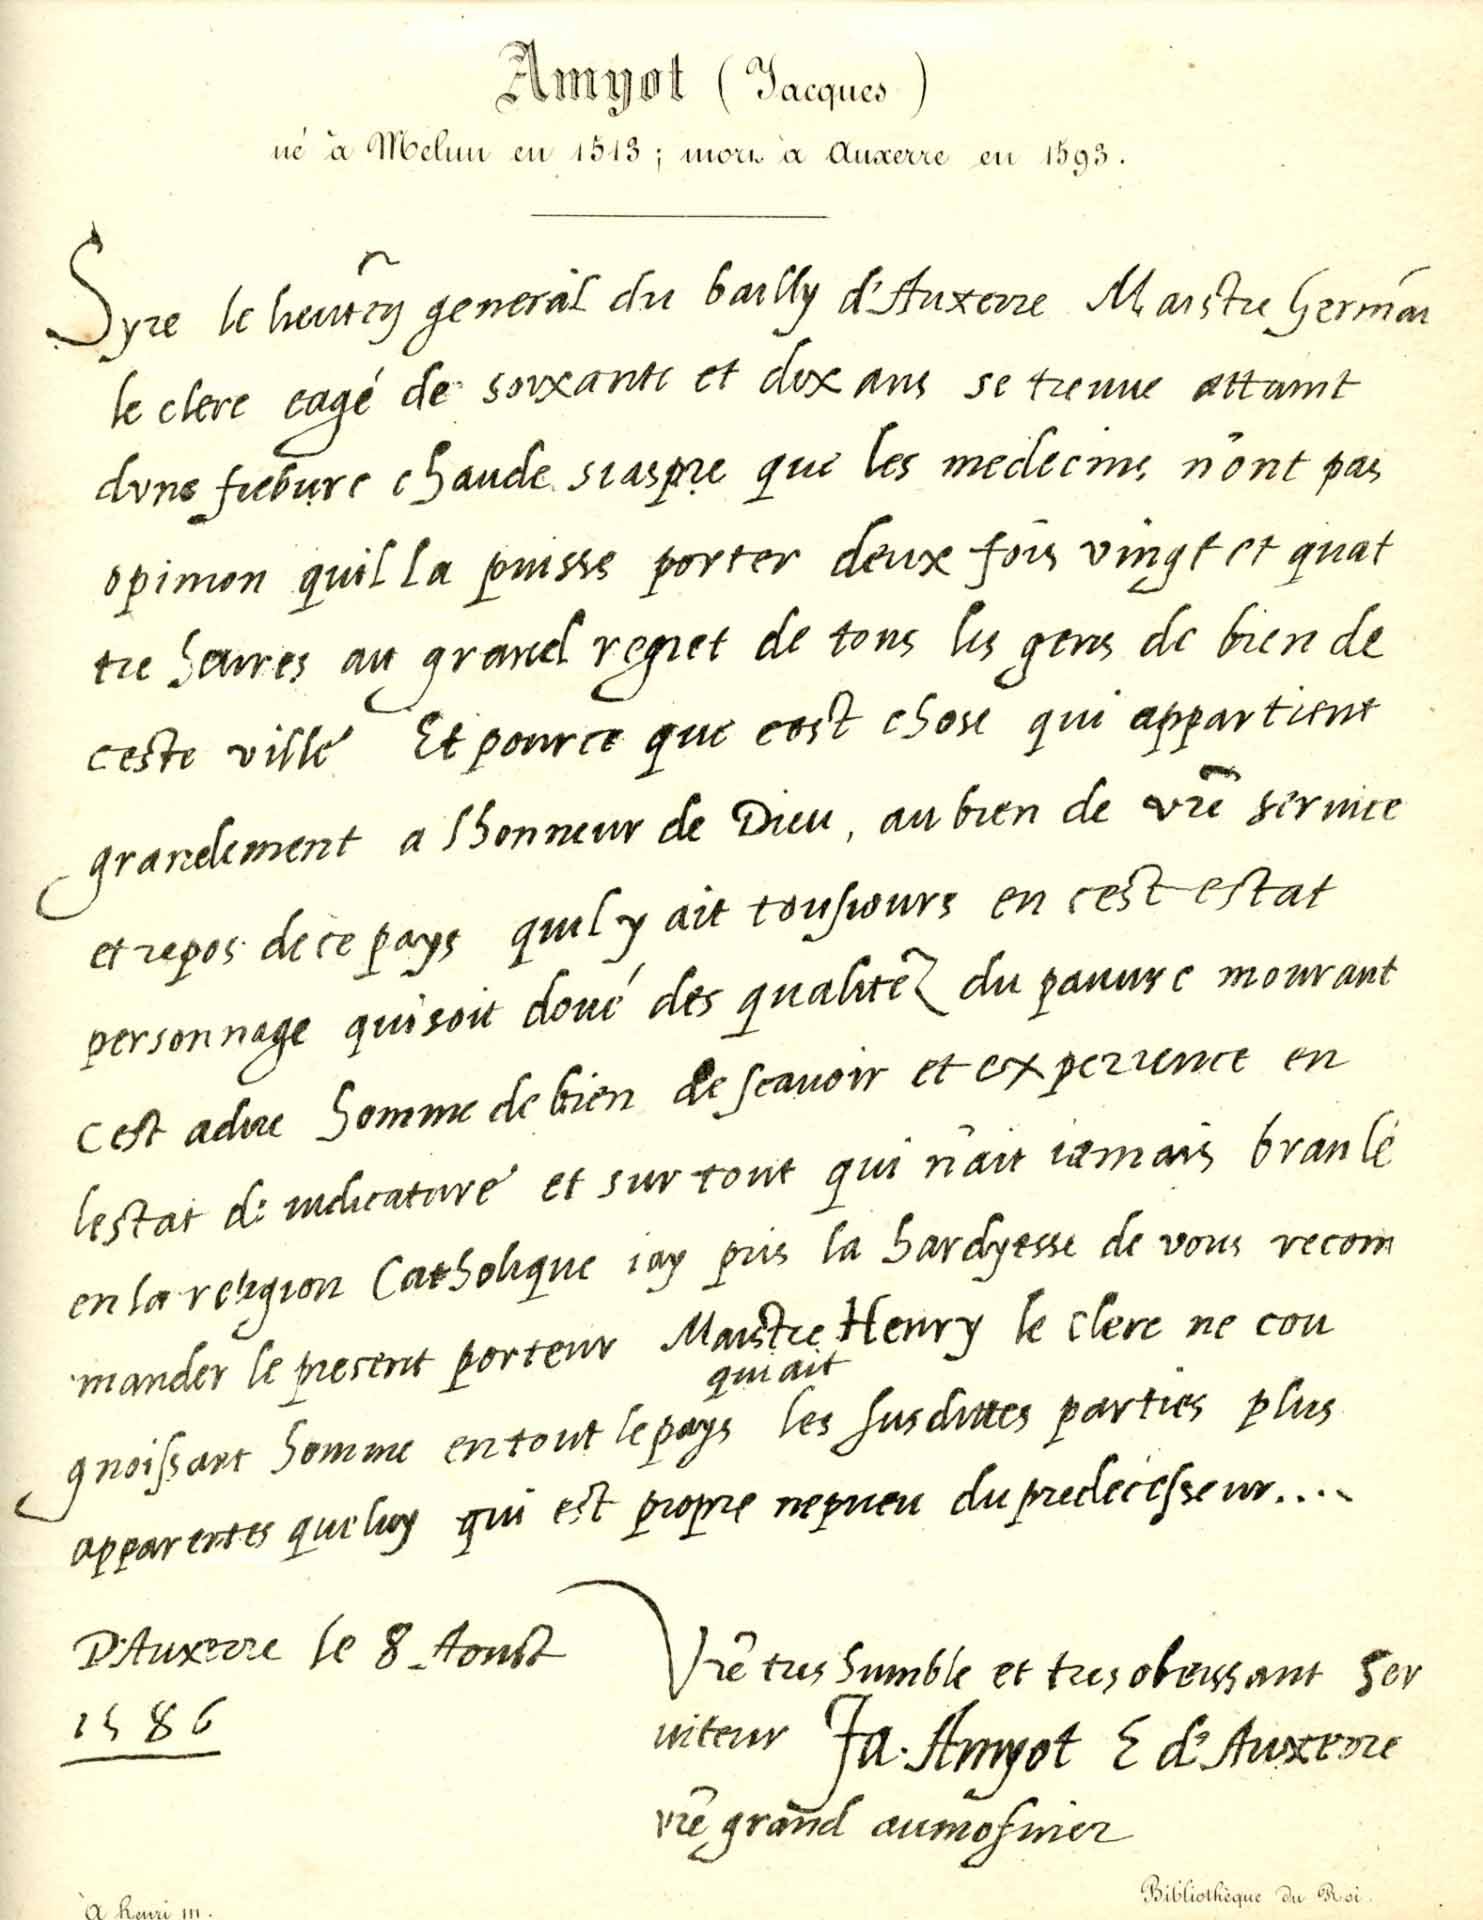 Amyot (Jacques)
né à Melun en 1513 ; mort à Auxerre en 1593.
Syre le general du bailly d'Auxerre Maistre Germai
le clerc eagé de soixante et dix ans se treuue attaint
dvne fiebure chaude si aspre que les medecins n'ont pas
opinion quil la puisse porter deux fois vingt et quat
tre heures au grand regret de tous les gens de bien de
ceste ville Et pource que cest chose qui appartient
grandement a lhonneur de Dieu, au bien de vre seruice
et repos de ce pays quil y ait tousiours en cest estat
personnage qui soit doué des qualitez du pauure mourant
cest adire homme de bien de scauoir et experience en
lestat de iudicature et sur tout qui n'ait iamais branlé
en la religion Catholique iay pris la hardyesse de vous recom
mander le present porteur Maistre Henry le clerc ne cou
qui ait
gnoissant homme en tout le pays les susdittes parties plus
apparentes que luy qui est propre nepueu du predecesseur....
D'Auxerre le 8 Aoust
1586
Vre tres humble et tres obeissant ser
uiteur Ja. Amyot E d'Auxerre
vre grand aumosnier
à henri III.
Bibliothèque du Roi.